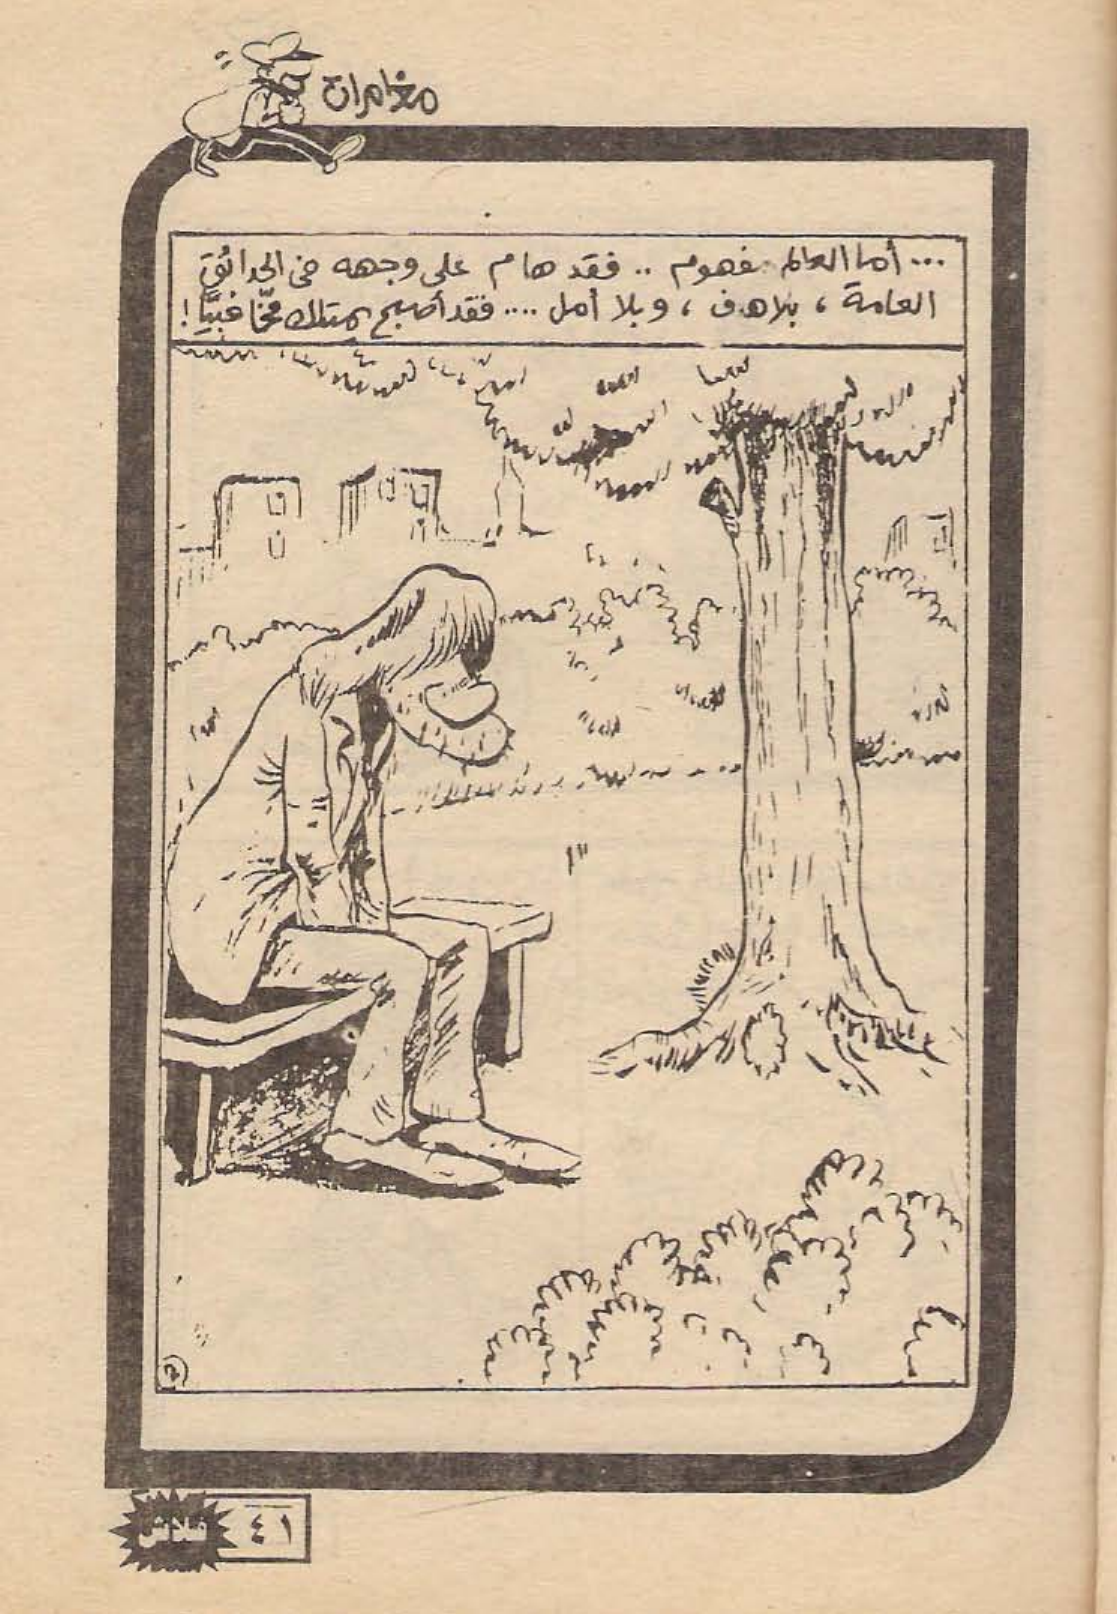 مغامرات
... أما العالم فهوم .. فقد هام على وجهه فى الحدائق
العامة ، بلا هدف ، وبلا أمل .... فقد أصبح يمتلك مخًّا غبيًّا !
٤١
فلاش